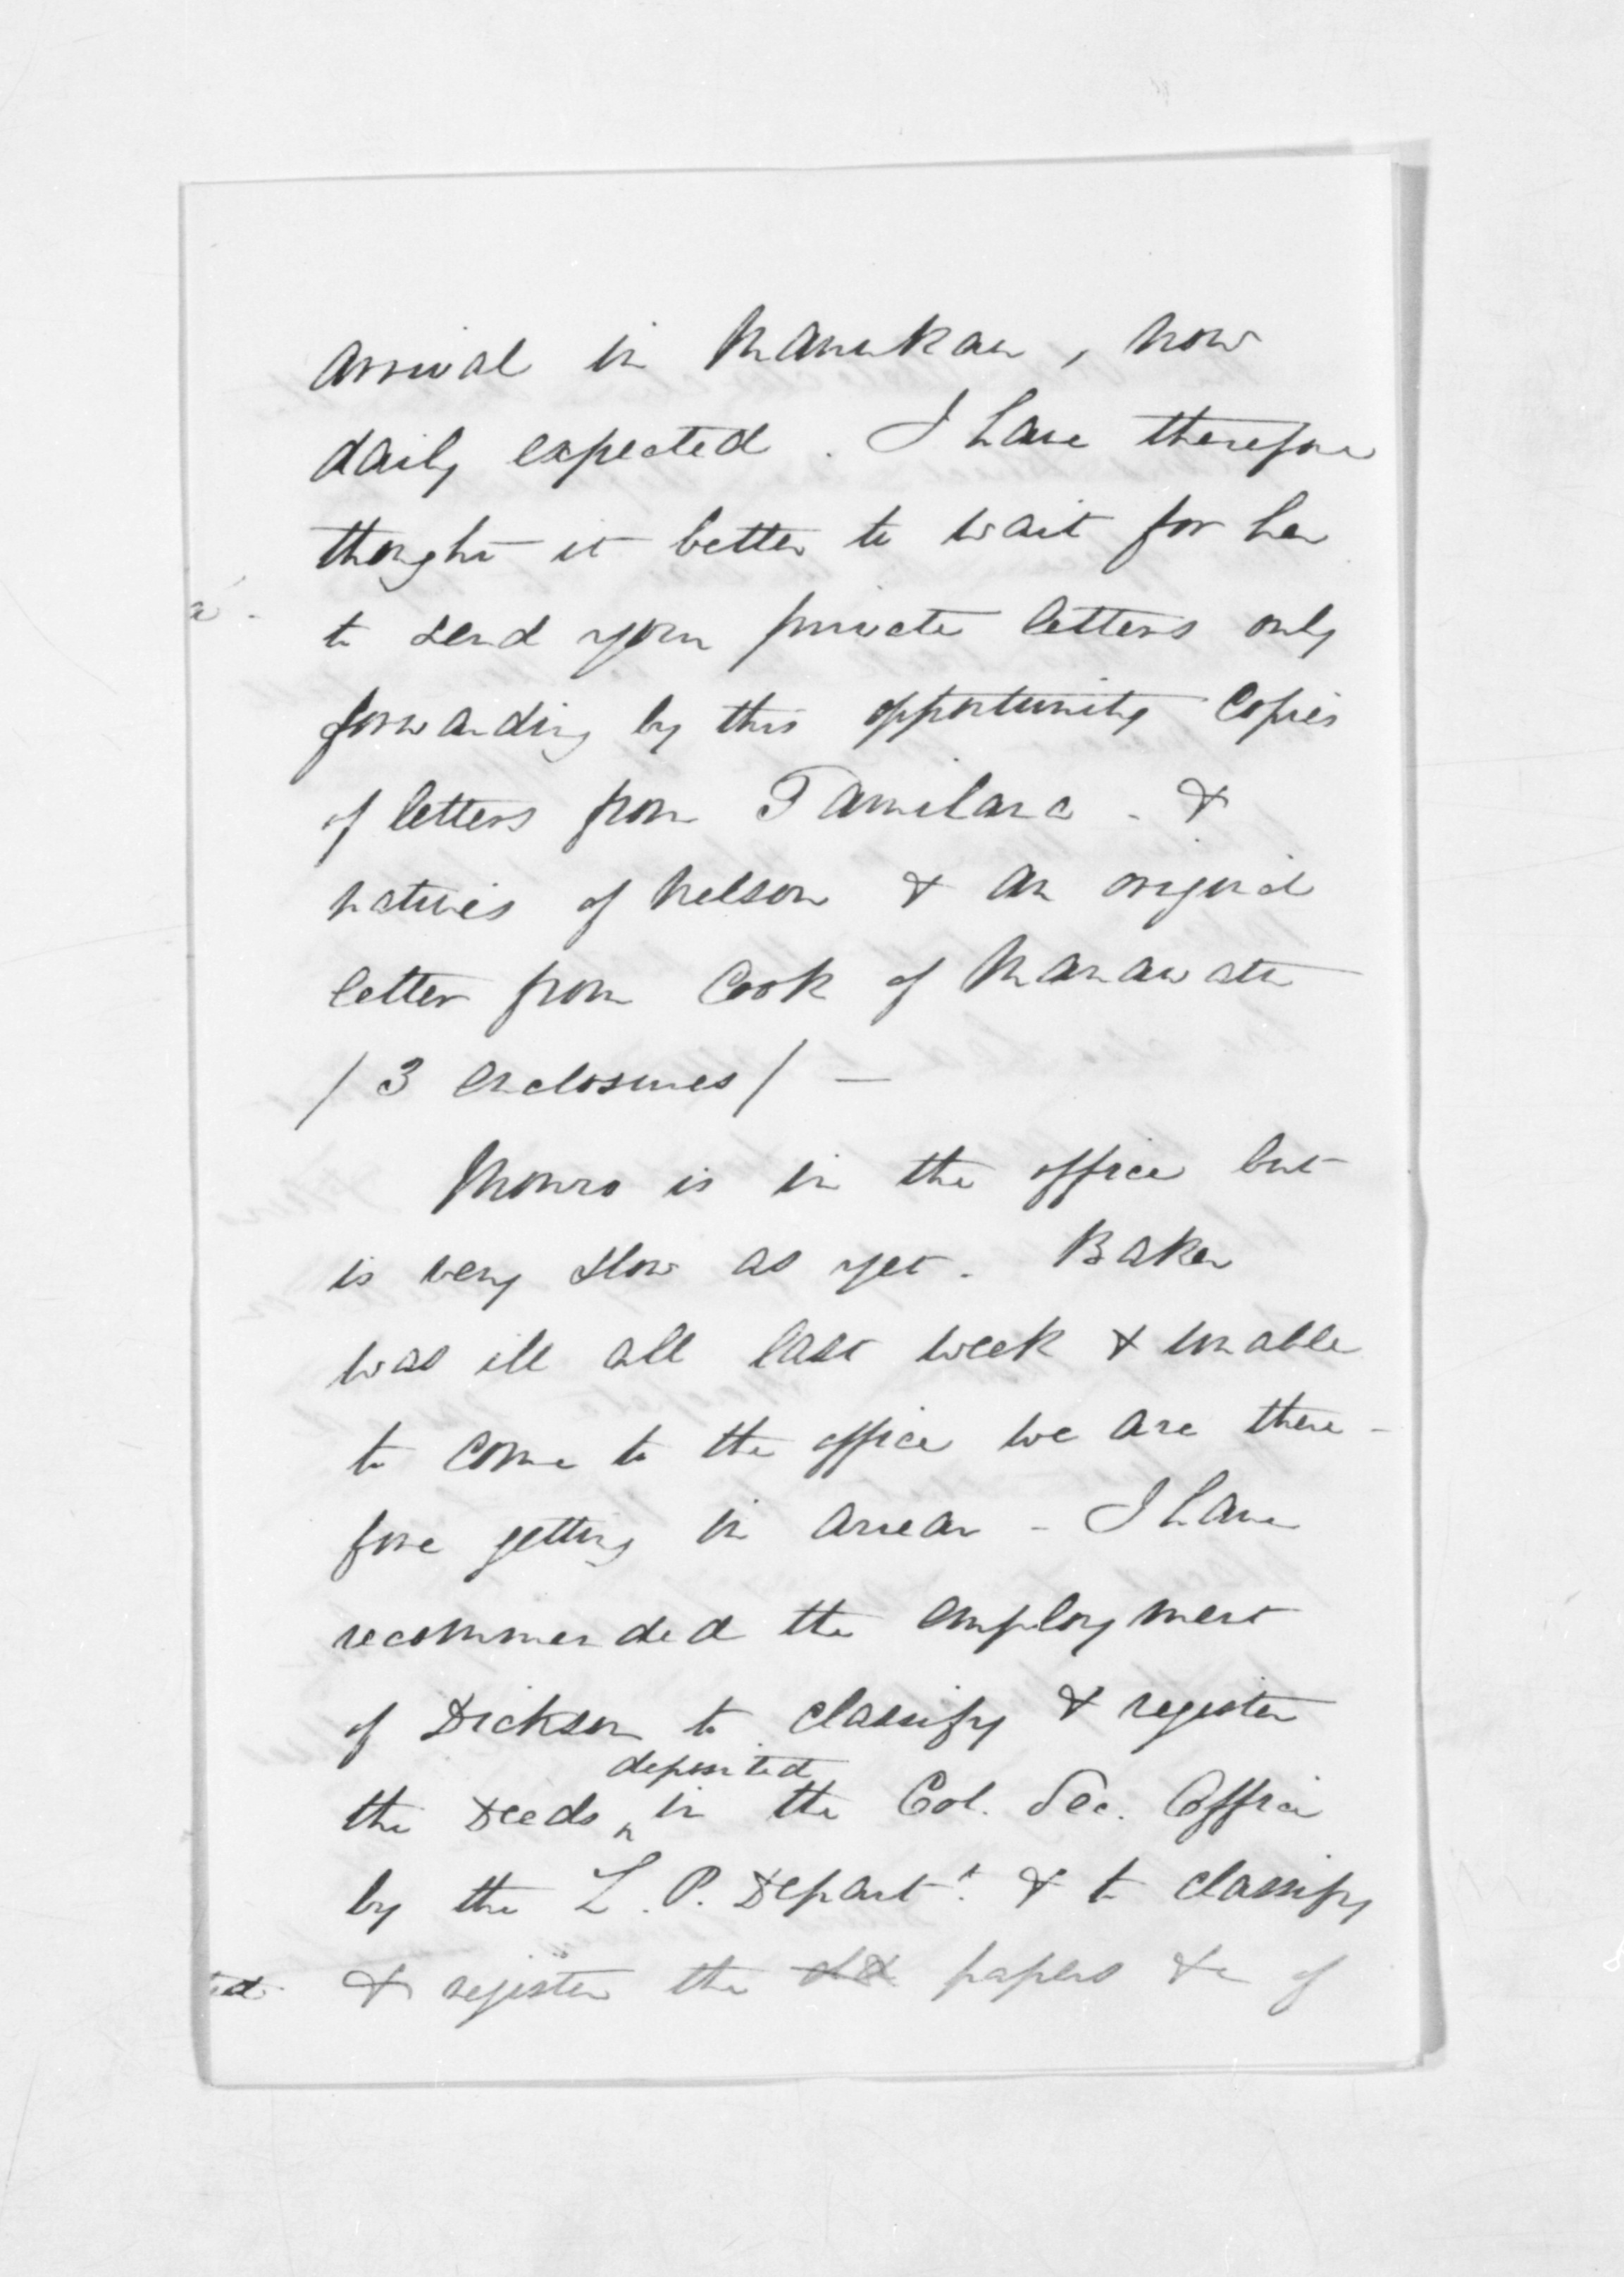 arrival in Manukau, now
daily expected. I have therefore
thought it better to wait for her
to send your private letters only
forwarding by this opportunity copies
of letters from Tamihana - &
natives of Nelson & an original
letter from Cook of Manawatu
/ 3 enclosures / —
Monro is in the office but
is very slow as yet. Baker
was ill all last week & unable
to come to the office we are there-
fore getting in arrear - I have
recommended the employment
of Dickson to classify & register
deposited
the Deeds ^ in the Col. Sec. Office
by the L. P. Depart.t & to classify
& register the old papers &c of